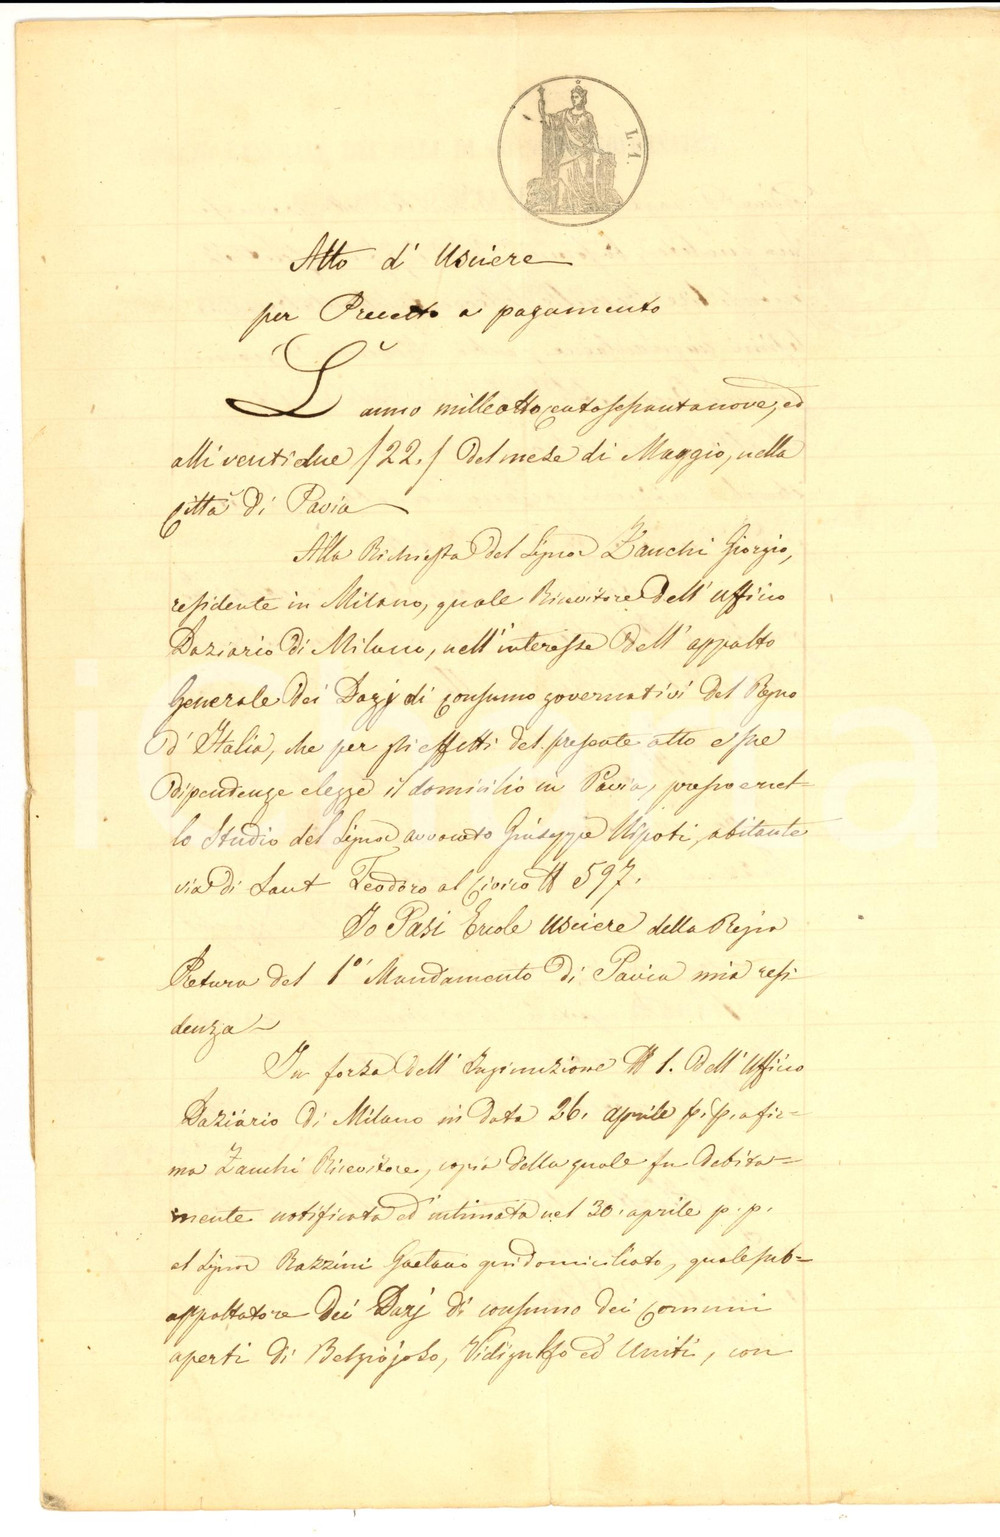 L. 1.
Atto d' Usciere
per Precetto a pagamento
L' anno milleottocentosessantanove, ed
alli ventidue /22./ del mese di Maggio, nella
Città di Pavia
Alla Richiesta del Signor Zanchi Giorgio,
residente in Milano, quale Ricevitore dell' Uffico
Daziario di Milano, nell' interesse dell' appalto
Generale dei Dazj di consumo governativi del Regno
d' Italia, che per gli effetti del presente atto e sue
dipendenze elegge il domicilio in Pavia, presso e nel-
lo Studio del Signor avvocato Giuseppe abitante
via di Sant Teodoro al Civico N 597.
Io Pasi Ercole Usciere della Regia
Pretura del 1° Mandamento di Pavia mia resi-
denza
In forza dell' Ingiunzione N 1. dell' Uffico
Daziario di Milano in data 26. aprile p.p. a fir=
ma Zanchi Ricevitore, copia della quale fu debita=
mente notificata ed intimata nel 30. aprile p. p.
al Signor Razzini Gaetano quì domiciliato, quale sub=
appaltatore dei Dazj di consumo dei Comuni
aperti di Belgiojoso, Vidigulfo ed Uniti, con